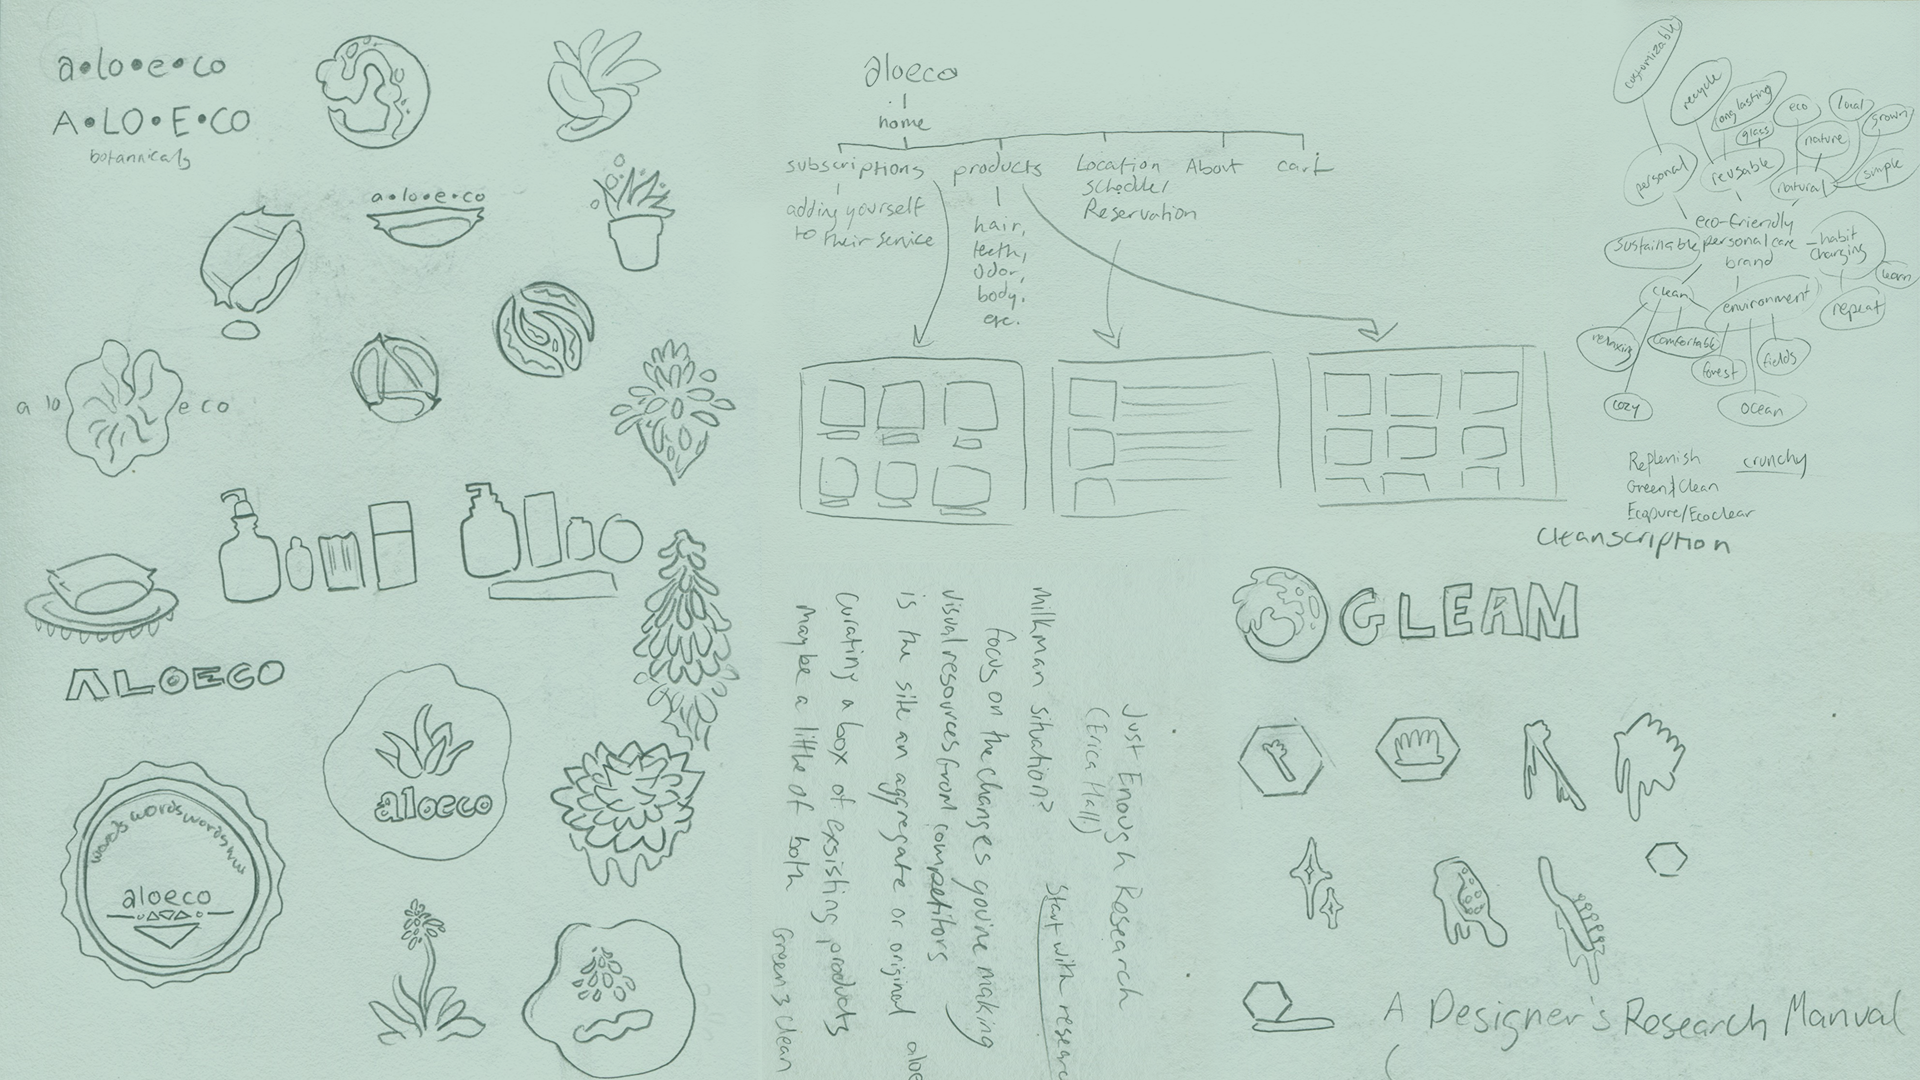 a•lo•e•co
A•LO•E•CO
botannicals
a•lo•e•co
a lo e co
ALOECO
aloeco
wordswordswordsww
aloeco
aloeco
home
subscriptions
products
Location
Scheduler
Reservation
About
cart
adding yourself
to their service
hair,
teeth,
odor,
body,
etc.
customizable
recycle
long lasting
glass
eco
local
grown
nature
simple
personal
reusable
natural
eco-friendly
personal care
brand
sustainable
habit
changing
learn
repeat
clean
environment
relaxing
comfortable
forest
fields
cozy
ocean
Replenish
crunchy
Green & Clean
Ecopure/Ecoclear
Cleanscription
GLEAM
Just Enough Research
(Erica Hall)
Start with research
milkman situation?
focus on the changes you're making
visual resources from competitors
is the site an aggregate or original
curating a box of exsisting products
maybe a little of both
aloe
Green & Clean
A Designer's Research Manual